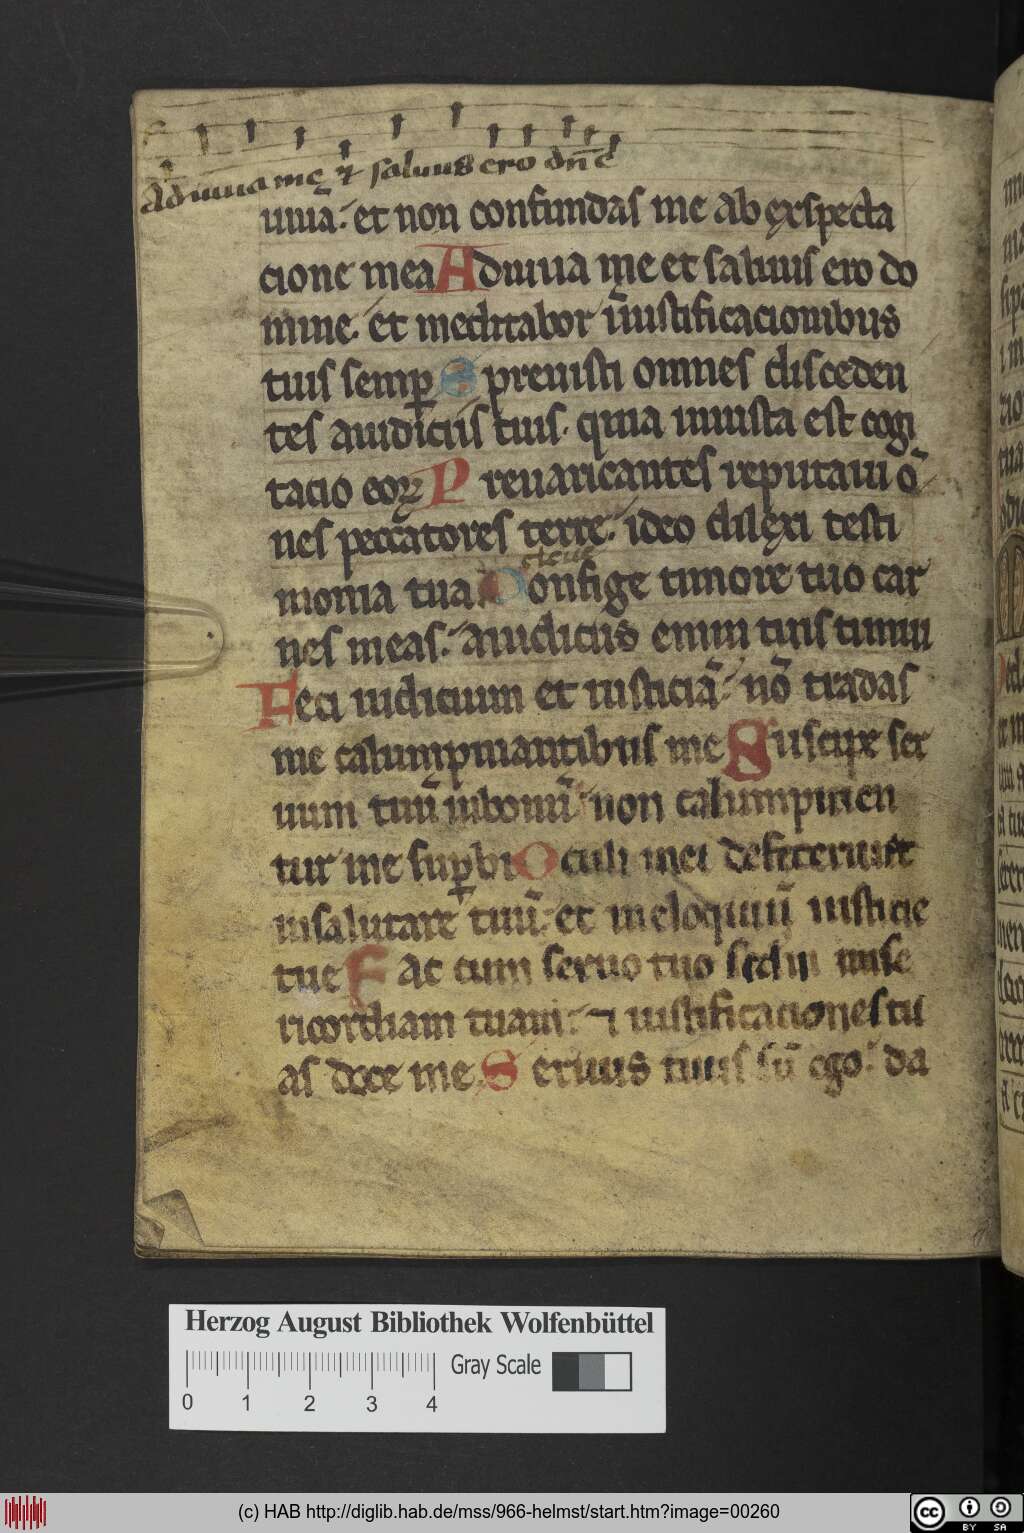 Adiuua me ⁊ saluus ero dn̄e
uiuā. et non confundas me ab ęxspecta
cione mea Adiuua me et saluus ero do
mine. et meditabor iniustificacionibus
tuis semꝑ Spreuisti omnes disceden
tes aiudiciis tuis. quia iniusta est cogi
tacio eoꝝ Preuaricantes reputaui ō
nes peccatores terre. ideo dilexi testi
monia tua Confige timore tuo car
nes meas. aiudiciis enim tuis timui
Feci iudicium et iusticiā. nō tradas
me calumpniantibus me Suscipe ser
uum tuū inbonū. non calumpnien
tur me suꝑbi Oculi mei defecerunt
insalutare tuū. et in eloquiū iusticie
tue Fac cum seruo tuo sedm̄ mise
ricordiam tuam. ⁊ iustificationes tu
as doce me. Seruus tuus sū ego. da
Herzog August Bibliothek Wolfenbüttel
Gray Scale
0 1 2 3 4
(c) HAB http://diglib.hab.de/mss/966-helmst/start.htm?image=00260
CC BY SA